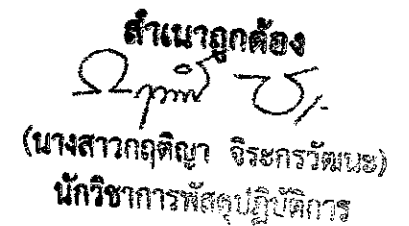 สำเนาถูกต้อง
(นางสาวกฤติญา จิระกรวัฒนะ)
นักวิชาการพัสดุปฏิบัติการ